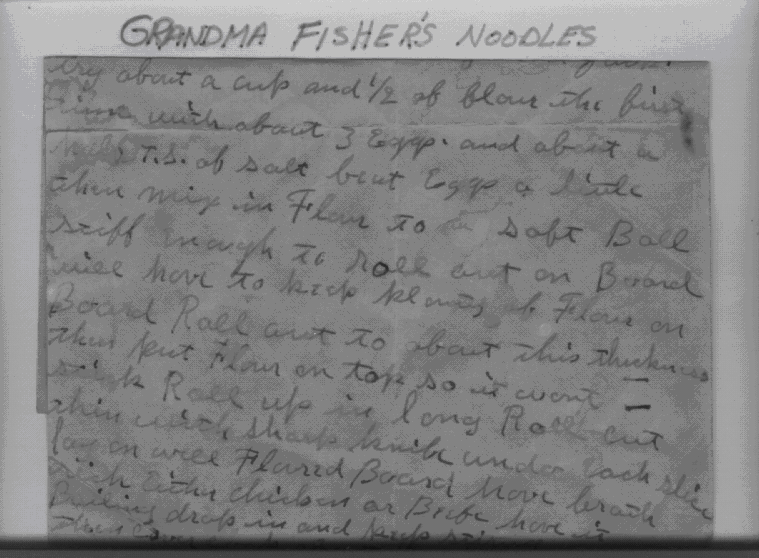 GRANDMA FISHER'S NOODLES
try about a cup and 1/2 of flour the first
time with about 3 Eggs. and about a
T.S. of salt beat Eggs a little
then mix in Flour to a soft Ball
stiff nough to roll out on Board
will have to keep plenty of Flour on
Board Roll out to about this thickness
then put Flour on top so it wont
stick Roll up in long Roll cut
thin with sharp knife undo each slice
lay on well Floured Board have broth
rich either chicken or Beef have it
Boiling drop in and keep
then